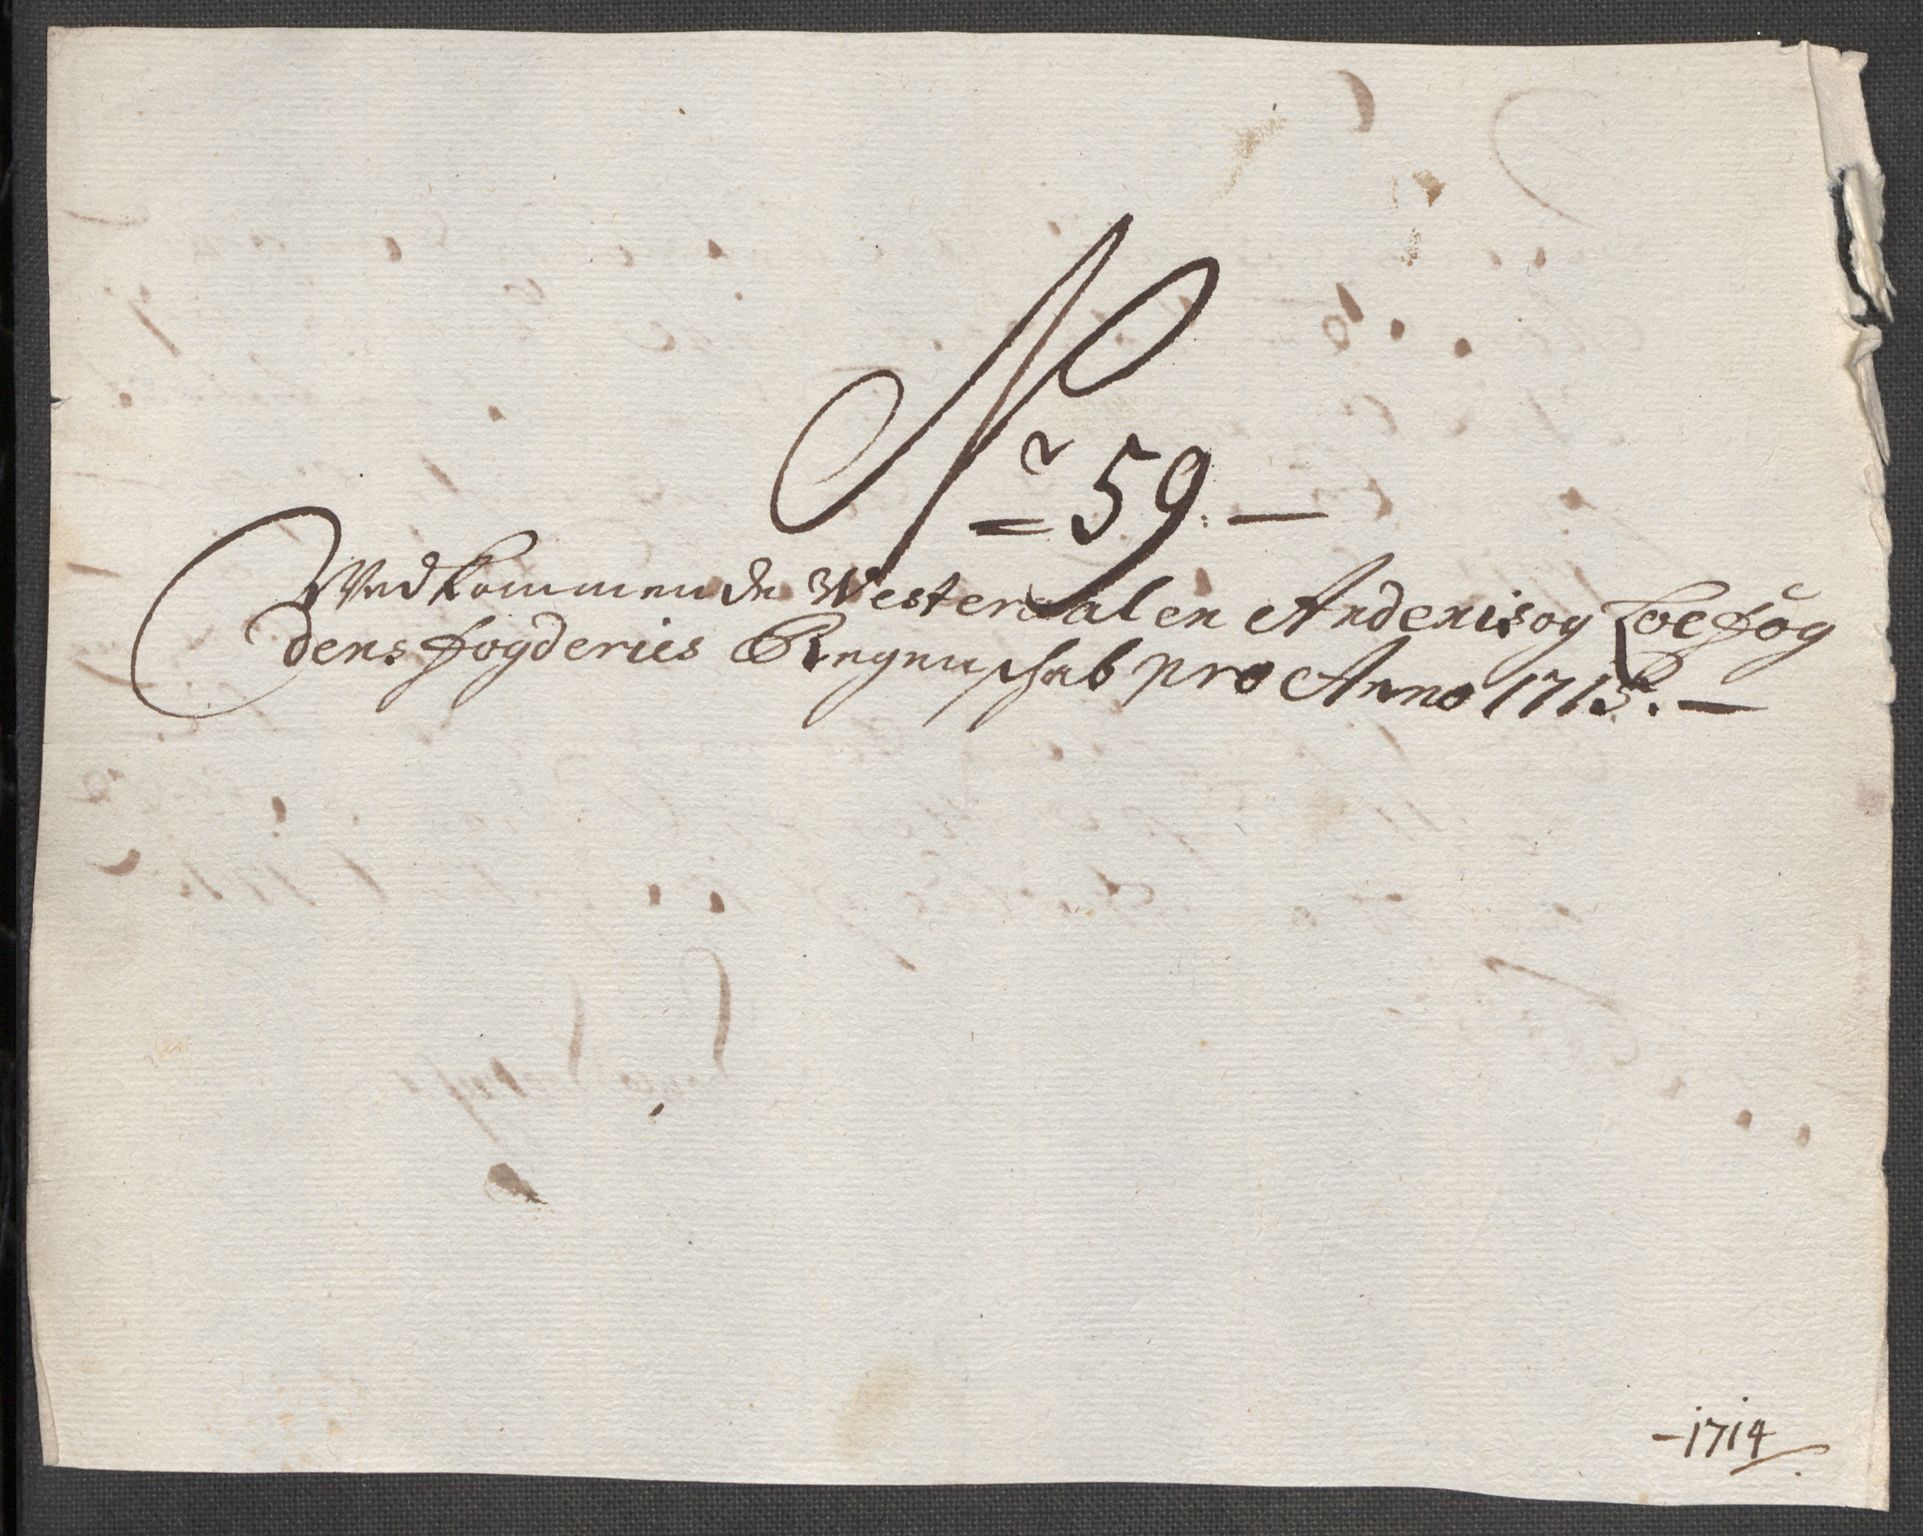 No 59.
Vedkommende Westeraalen Andenis og Loefög
dens fogderies Regnschab pro Anno 1715.
1714